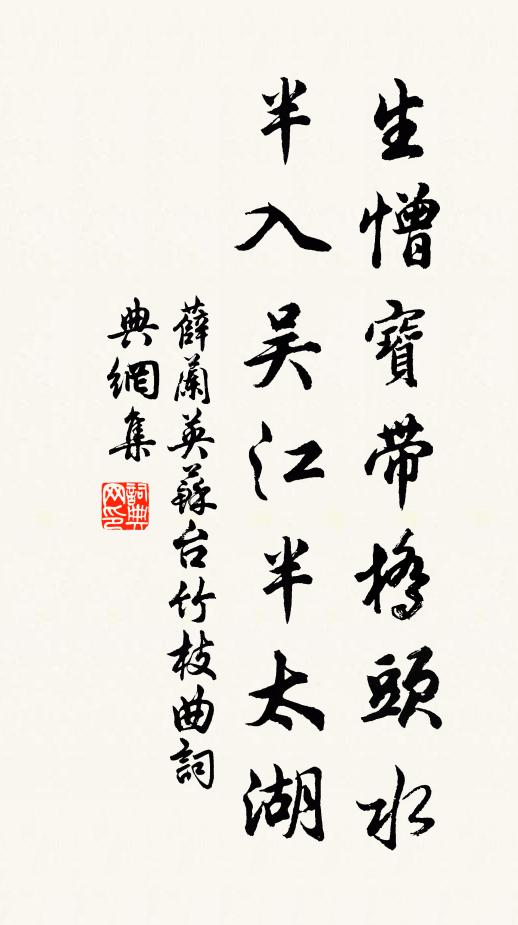 生憎寶帶橋頭水
半入吴江半太湖
薛蘭英蘇台竹枝曲詞
典網集
詞典网印